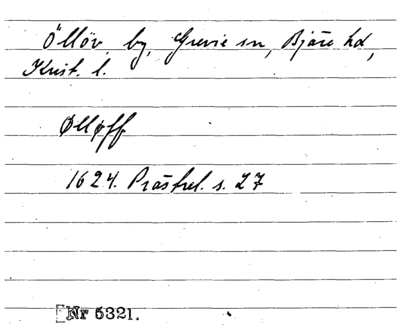 Öllöv, by, Grevie sn, Bjäre hd,
Krist. l.
Ølløff
1624. Prästrel. s. 27
Nr 5321.